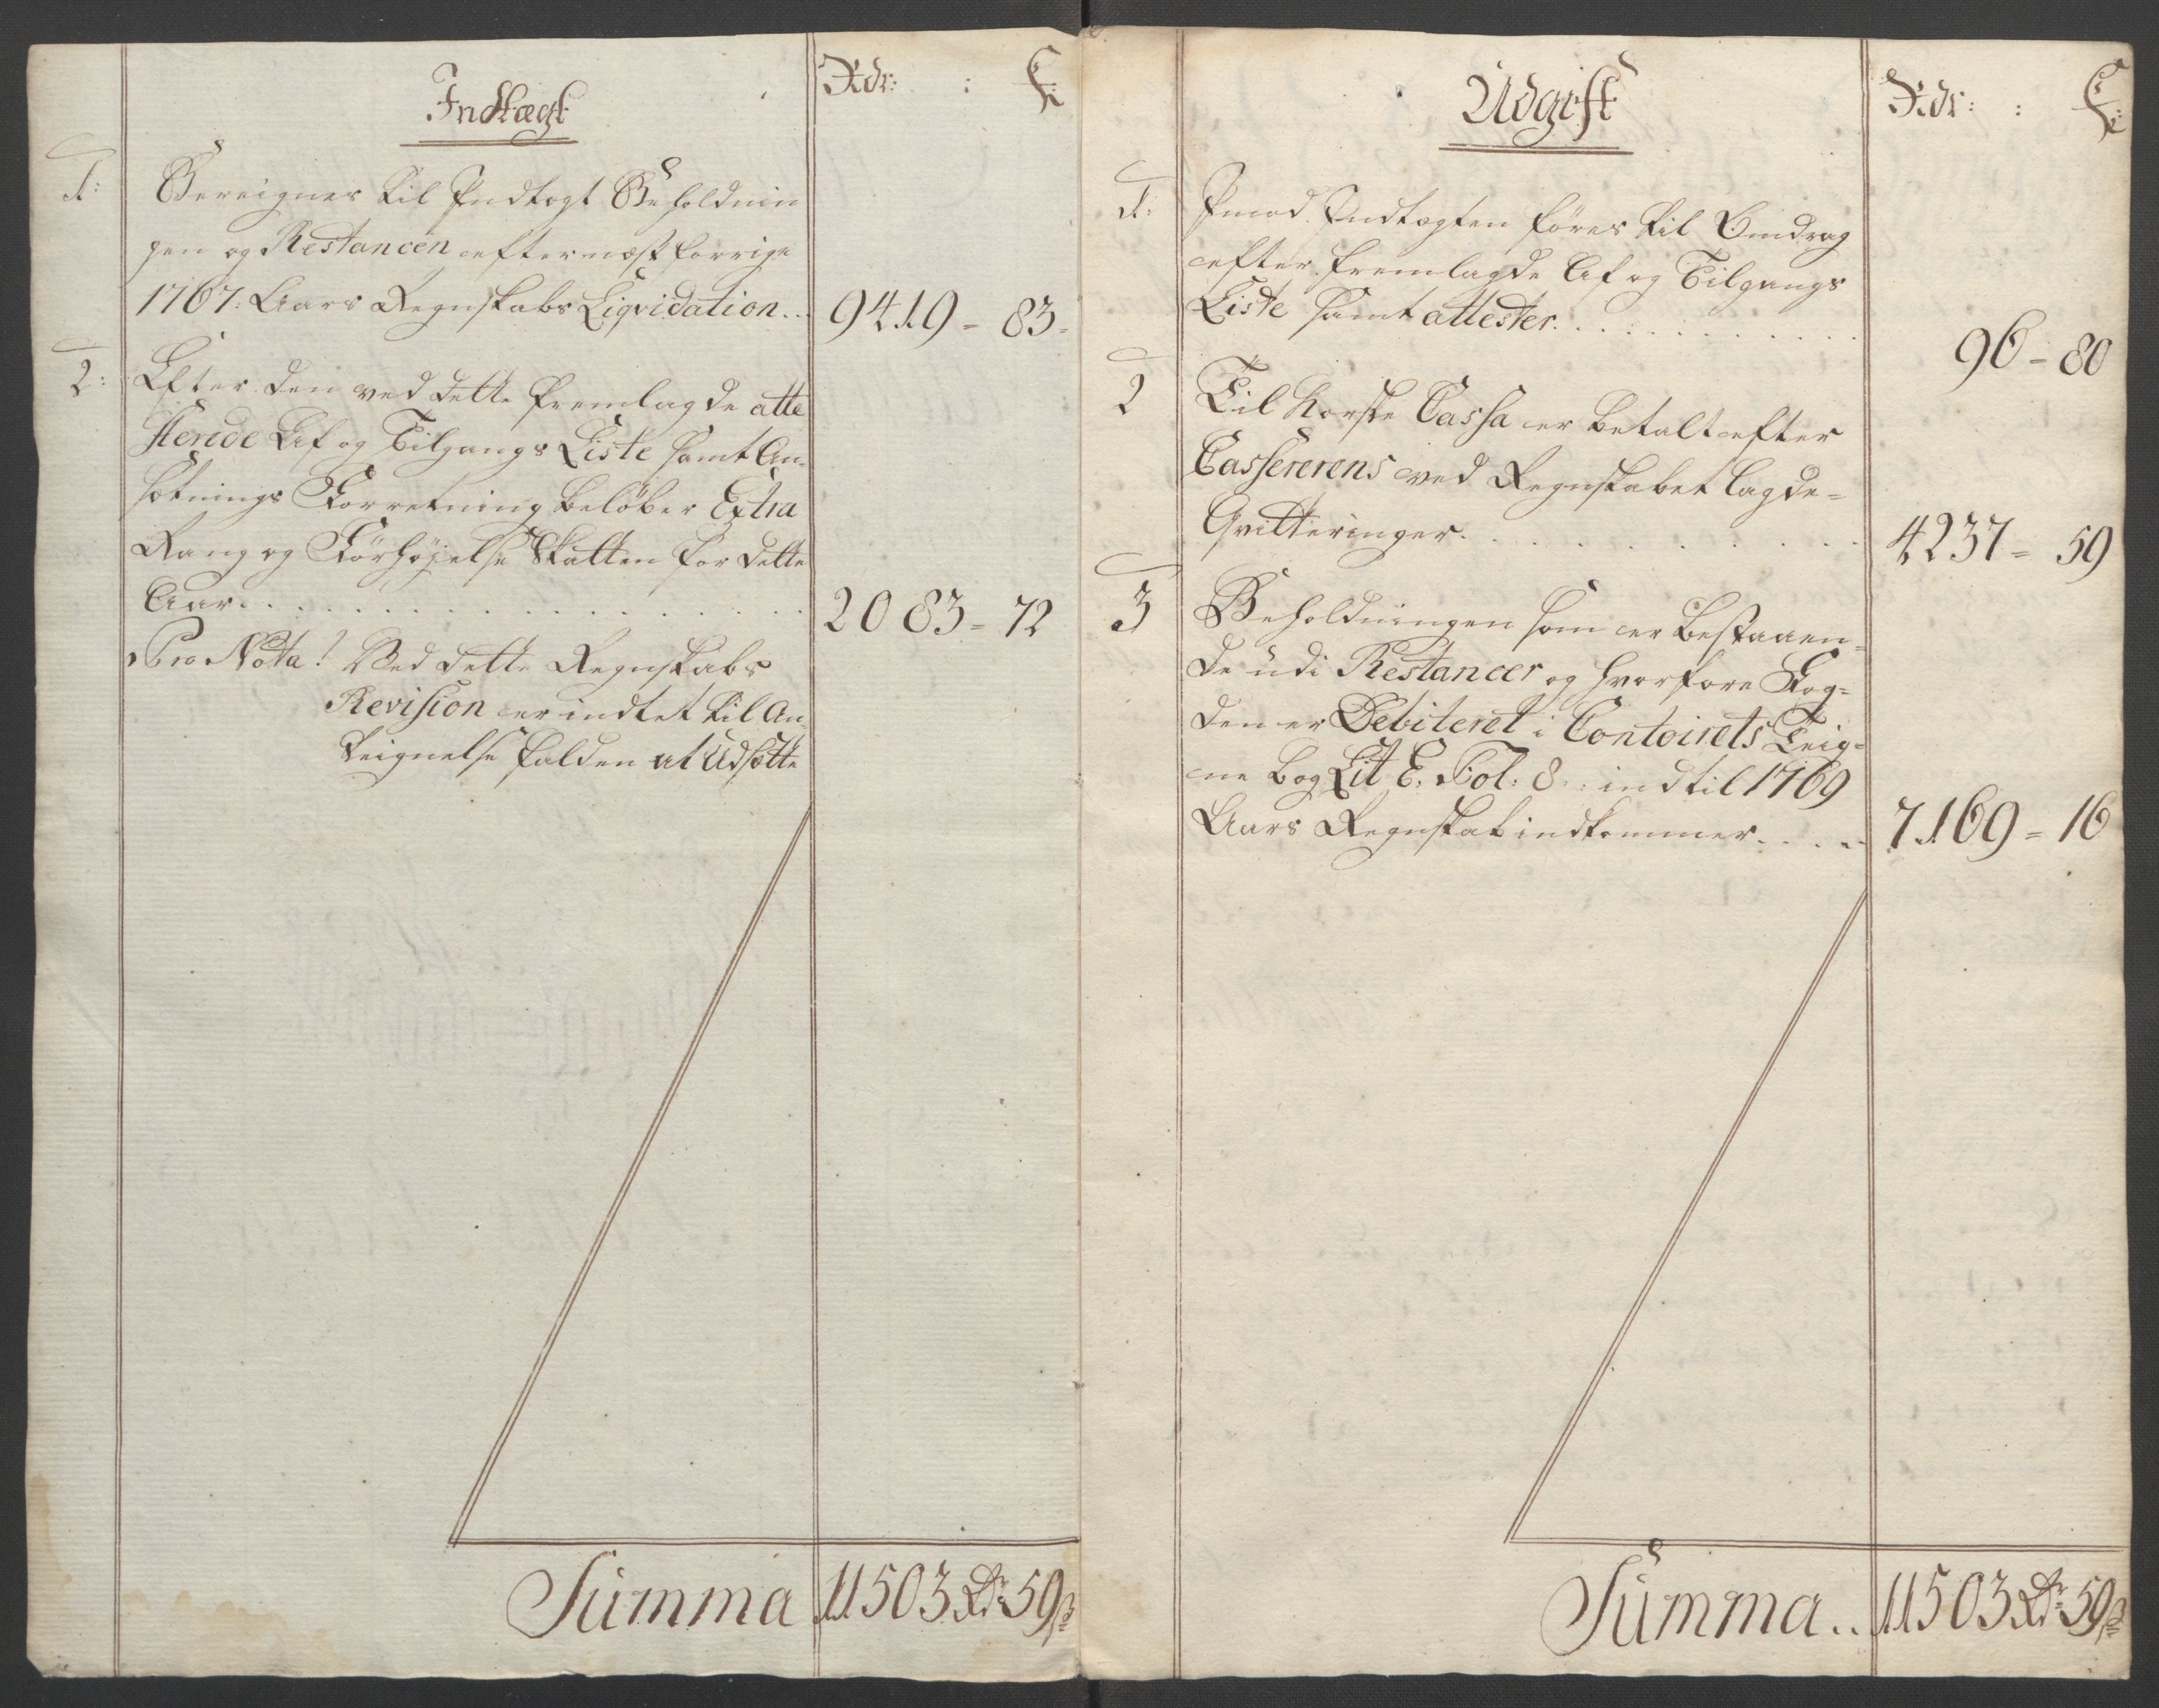 Indtægt
Rdr: : ß:
1: Bereignes til Indtægt Beholdnin
gen og Restancen efter næstforrige
1767. Aars Regnskabs Liqvidation.. 9419 = 83 =
2: Efter den ved dette fremlagde atte
sterede Af og Tilgangs Liste samt An
sætnings Forretning beløber Extra
Rang og Forhøjelse Skatten for dette
Aar. . . . . . . . . . . . . . . 2083 = 72
Pro Nota! Ved dette Regnskabs
Revision er indtet til An
teignelse falden at Udsætte
Summa 11503 Rdr 59 ß
Udgift
Rdr: : ß:
1: Imod Indtægten føres til Omdrag
efter fremlagde Af og Tilgangs
Liste samt attester. . . . . . . . . . . 96 = 80
2 Til Norske Cassa er betalt efter
Cassererens ved Regnskabet lagde =
Qvitteringer. . . . . . . . . . 4237 = 59
3 Beholdningen som er bestaaen =
de udi Restancer og hvorfore Fog =
den er Debiteret i Contoirets Teig =
ne bog Lit E. Fol: 8 : indtil 1769
Aars Regnskab indkommer. . . . 7169 = 16
Summa.. 11503 Rdr 59 ß